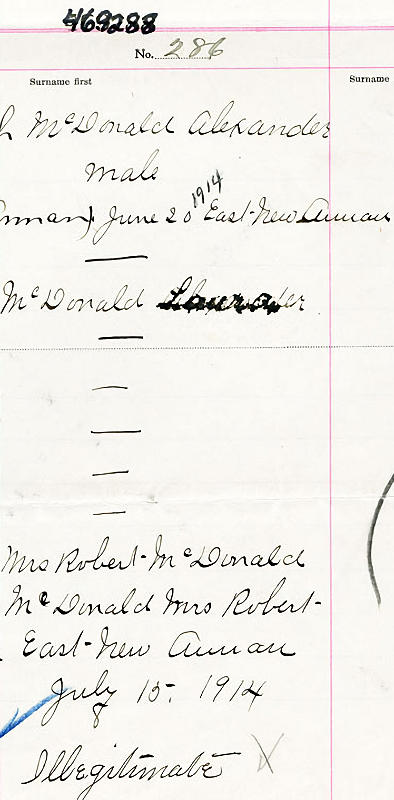 469288
No. 286
Surname first Surname
McDonald Alexander
Male
1914
June 20 East New Annan
McDonald
Mrs Robert McDonald
McDonald Mrs Robert
East New Annan
July 15, 1914
8
Illegitimate